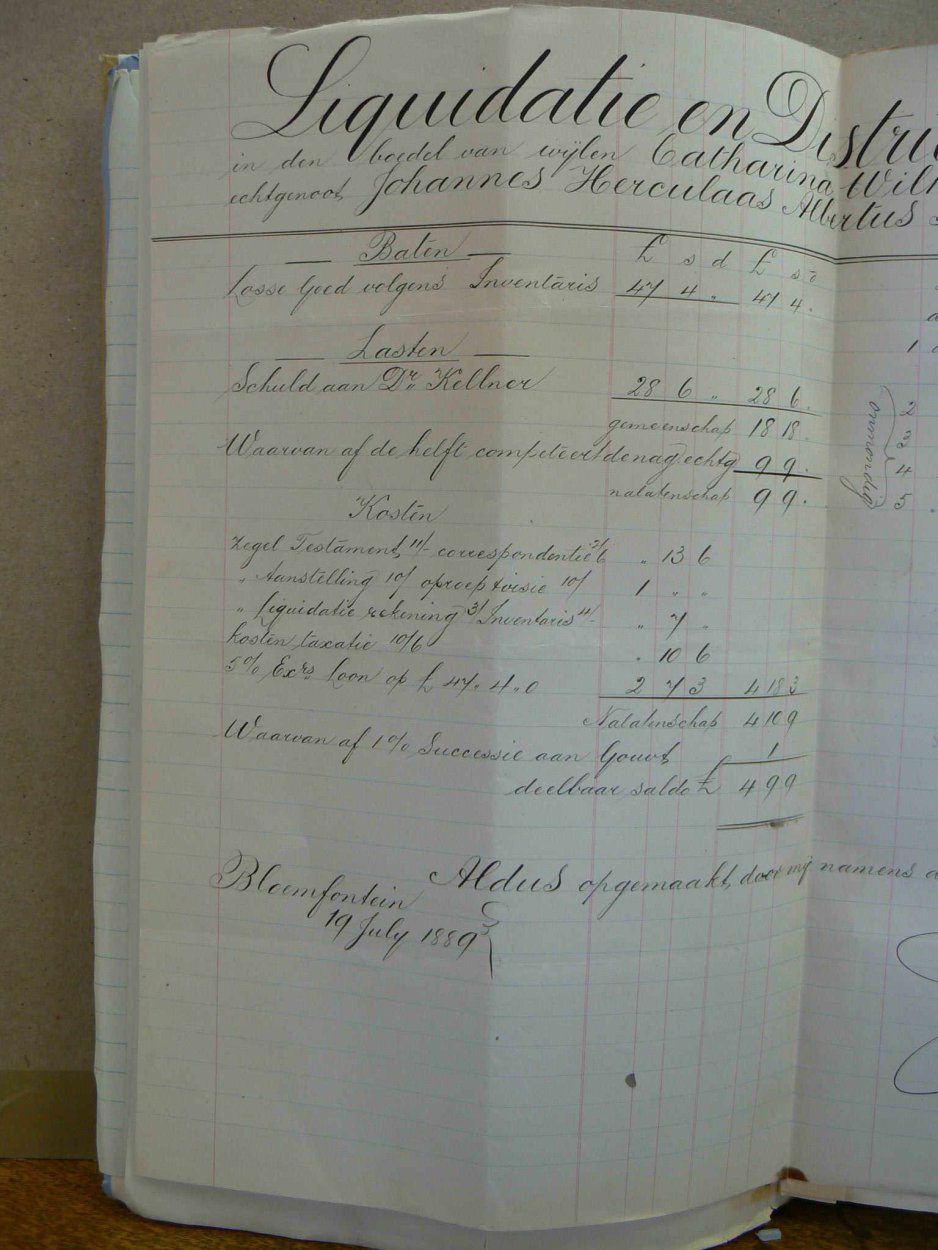 Liquidatie en Distri
in den boedel van wijlen Catharina Wilh
echtgenoot Johannes Herculaas Albertus
Baten £ s d £ s d
Losse Goed volgens Inventaris 47 4 " 47 4 "
Lasten
Schuld aan Dr. Kellner 28 6 " 28 6 "
gemeenschap 18 18 "
Waarvan af de helft competeert de nag. echtg 9 9 "
nalatenschap 9 9 "
Kosten
Zegel Testament 11/- correspondentie 2/6 " 13 6
" Aanstelling 10/ oproep & visie 10/ 1 " "
" Liquidatie rekening 3/ Inventaris 4/- " 7 "
Kosten taxatie 10/6 " 10 6
5% Exrs. loon op £ 47. 4. 0 2 7 3 4 18 3
Nalatenschap 4 10 9
Waarvan af 1% Successie aan Gouvt 1
deelbaar saldo £ 4 9 9
Aldus opgemaakt, door mij namens
Bloemfontein
19 July 1889
onmondig